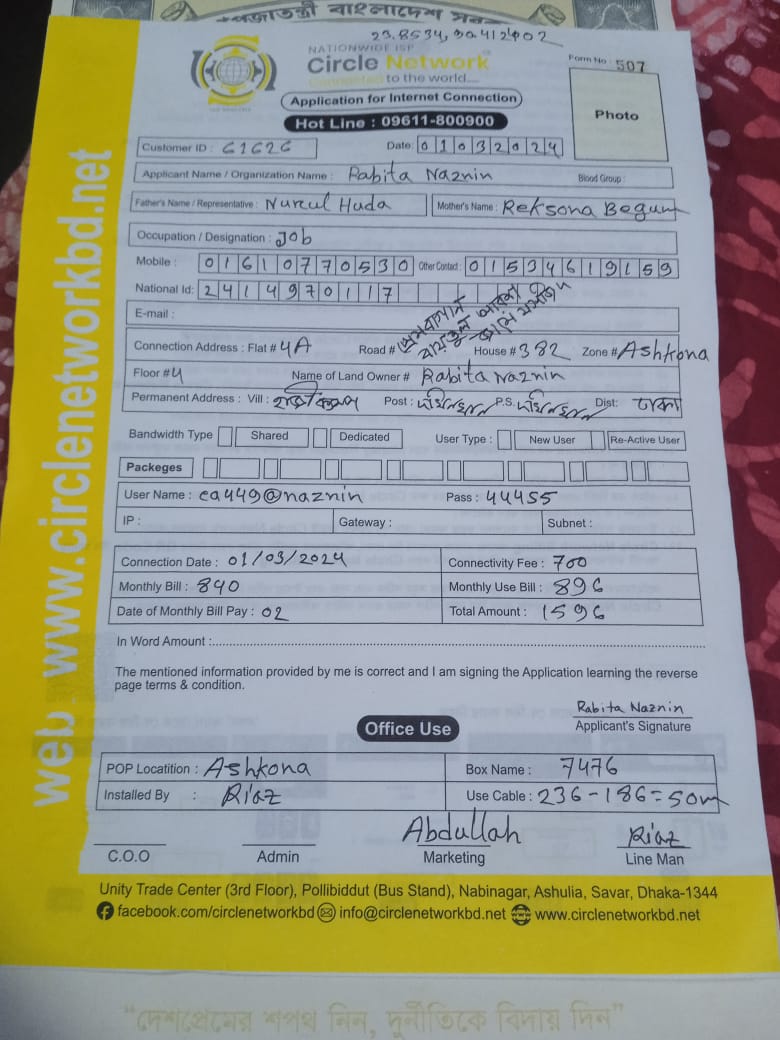 23.8534,90.412402
NATIONWIDE ISP
Circle Network
Connected to the world....
Form No : 507
Application for Internet Connection
Photo
Hot Line : 09611-800900
Customer ID : 61626 Date: 01032024
Applicant Name / Organization Name : Rabita Naznin Blood Group :
Father's Name / Representative : Nurul Huda Mother's Name : Reksona Begum
Occupation / Designation : Job
Mobile : 01610770530 Other Contact : 01534619159
National Id: 2414970117
E-mail :
Connection Address : Flat # 4A Road # প্রেমবাগান House # 382 Zone # Ashkona
Floor # 4 Name of Land Owner # Rabita Naznin
Permanent Address : Vill : Post : P.S. Dist: ঢাকা
Bandwidth Type Shared Dedicated User Type : New User Re-Active User
Packeges
User Name : ca449@naznin Pass : 44455
IP : Gateway : Subnet :
Connection Date : 01/03/2024 Connectivity Fee : 700
Monthly Bill : 840 Monthly Use Bill : 896
Date of Monthly Bill Pay : 02 Total Amount : 1596
In Word Amount :
The mentioned information provided by me is correct and I am signing the Application learning the reverse
page terms & condition.
Rabita Naznin
Applicant's Signature
Office Use
POP Locatition : Ashkona Box Name : 7476
Installed By : Riaz Use Cable : 236-186=50m
Abdullah Riaz
C.O.O Admin Marketing Line Man
Unity Trade Center (3rd Floor), Pollibiddut (Bus Stand), Nabinagar, Ashulia, Savar, Dhaka-1344
facebook.com/circlenetworkbd info@circlenetworkbd.net www.circlenetworkbd.net
web: www.circlenetworkbd.net
"দেশপ্রেমের শপথ নিন, দুর্নীতিকে বিদায় দিন"